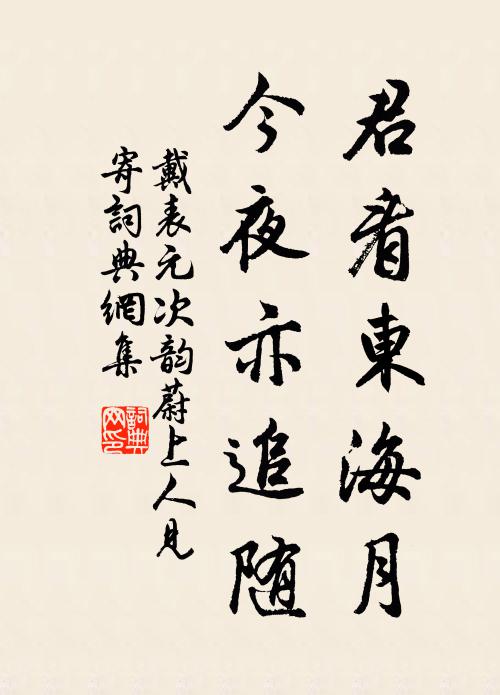 君看東海月
今夜亦追随
戴表元次韵蔚上人見
寄詞典網集
詞典
网印